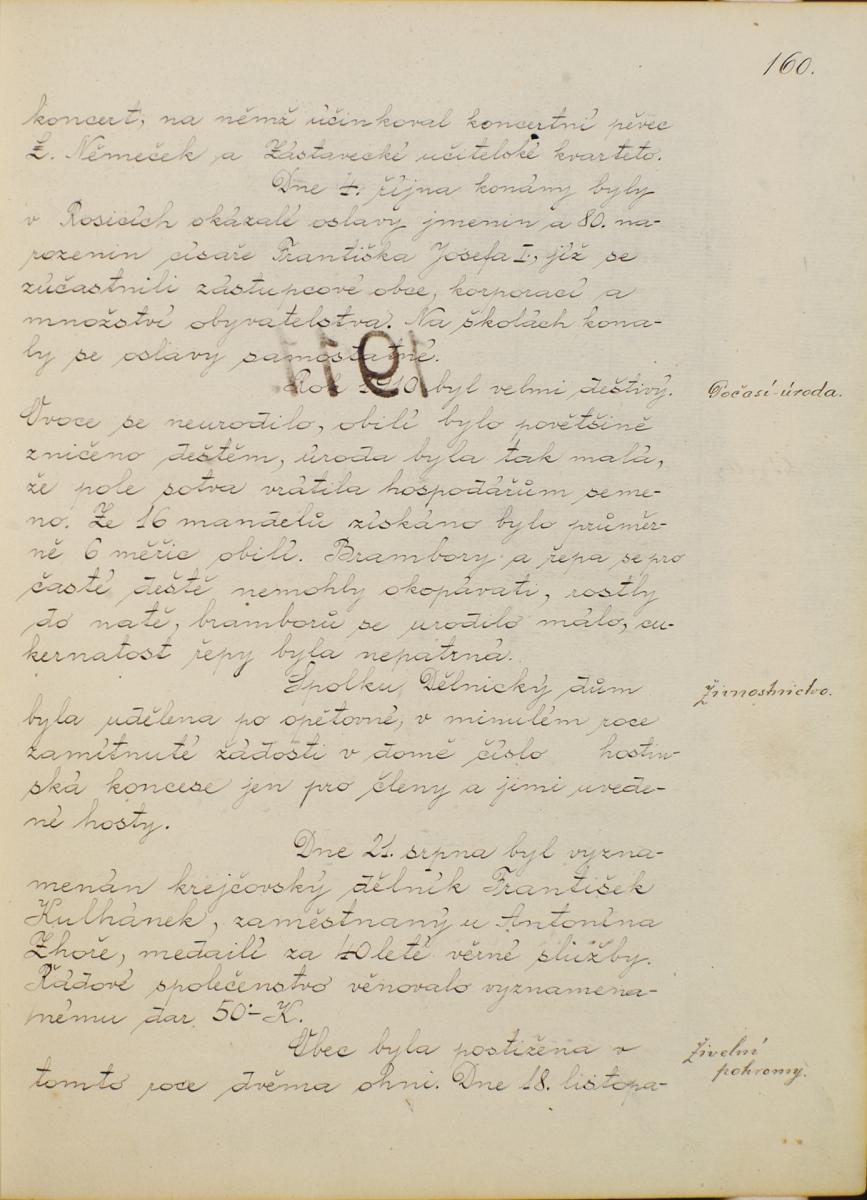 160.
koncert, na němž účinkoval koncertní pěvec
Němeček a Zástavecké učitelské kvarteto.
Dne 4. října konány byly
v Rosicích okázalé oslavy jmenin a 80. na-
rozenin císaře Františka Josefa I., jíž se
zúčastnili zástupcové obce, korporací a
množství obyvatelstva. Na školách kona-
ly se oslavy samostatné.
Rok 1910 byl velmi deštivý.
Počasí-úroda.
Ovoce se neurodilo, obilí bylo povětšině
zničeno deštěm, úroda byla tak malá,
že pole sotva vrátila hospodářům seme-
no. Ze 16 mandelů získáno bylo průměr-
ně 6 měřic obilí. Brambory a řepa se pro
časté deště nemohly okopávati, rostly
do natě, bramborů se urodilo málo, cu-
kernatost řepy byla nepatrná.
Spolku Dělnický dům
Živnostnictvo.
byla udělena po opětovné, v minulém roce
zamítnuté žádosti v domě číslo hostin-
ská koncese jen pro členy a jimi uvede-
né hosty.
Dne 21. srpna byl vyzna-
menán krejčovský dělník František
Kulhánek, zaměstnaný u Antonína
Zhoře, medailí za 40leté věrné služby.
Řádové společenstvo věnovalo vyznamena-
nému dar 50·- K.
Obec byla postižena v
Živelní
pohromy.
tomto roce dvěma ohni. Dne 18. listopa-